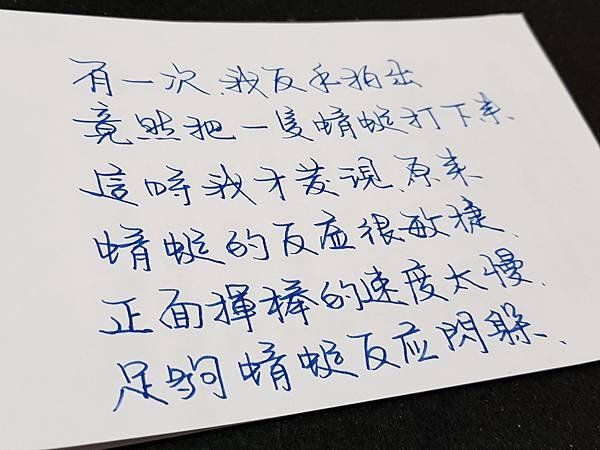 有一次、我反手拍出
竟然把一隻蜻蜓打下来、
這時我才发现、原来
蜻蜓的反应很敏捷、
正面揮棒的速度太慢、
足夠蜻蜓反应閃躲、